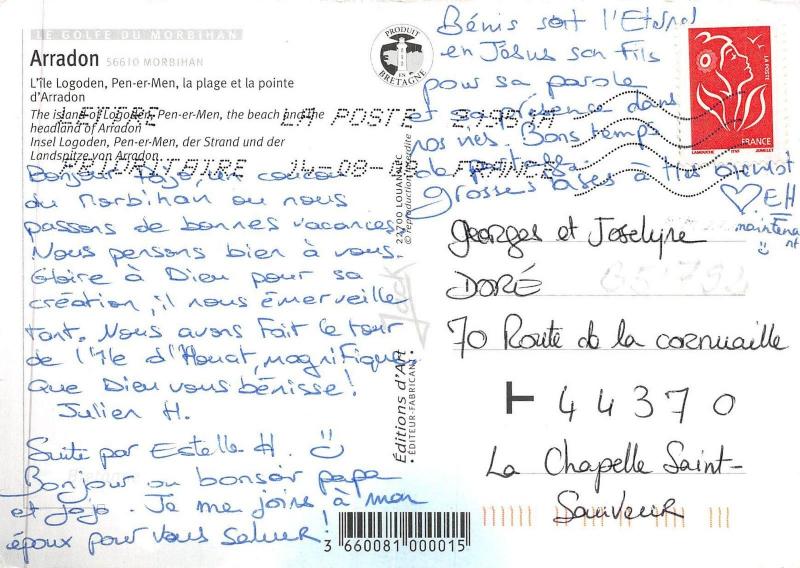 LE GOLFE DU MORBIHAN
Arradon 56610 MORBIHAN
L'île Logoden, Pen-er-Men, la plage et la pointe
d'Arradon
The island of Logoden, Pen-er-Men, the beach and the
headland of Arradon
Insel Logoden, Pen-er-Men, der Strand und der
Landspitze von Arradon
PRODUIT
EN
BRETAGNE
LA POSTE
14-08-
FRANCE
LA POSTE
FRANCE
Bonjour Jojo, un coucou
du Morbihan où nous
passons de bonnes vacances.
Nous pensons bien à vous.
Gloire à Dieu pour sa
création, il nous émerveille
tant. Nous avons fait le tour
de l'île d'Houat, magnifique.
Que Dieu vous bénisse!
Julien H.
Suite par Estelle H. ☺
Bonjour ou bonsoir papa
et jojo. Je me joins à mon
époux pour vous saluer!
Bénis soit l'Eternel
en Jésus son Fils
pour sa parole
et sa présence dans
nos vies. Bons temps
de
grosses bises à très bientôt
♡ EH
maintena
nt
☺
22700 LOUANNEC
© reproduction interdite
Jack
Éditions d'Art
ÉDITEUR-FABRICANT
Georges et Joselyne
DORÉ
70 Route de la cornuaille
44370
La Chapelle Saint-
Sauveur
3 660081 000015